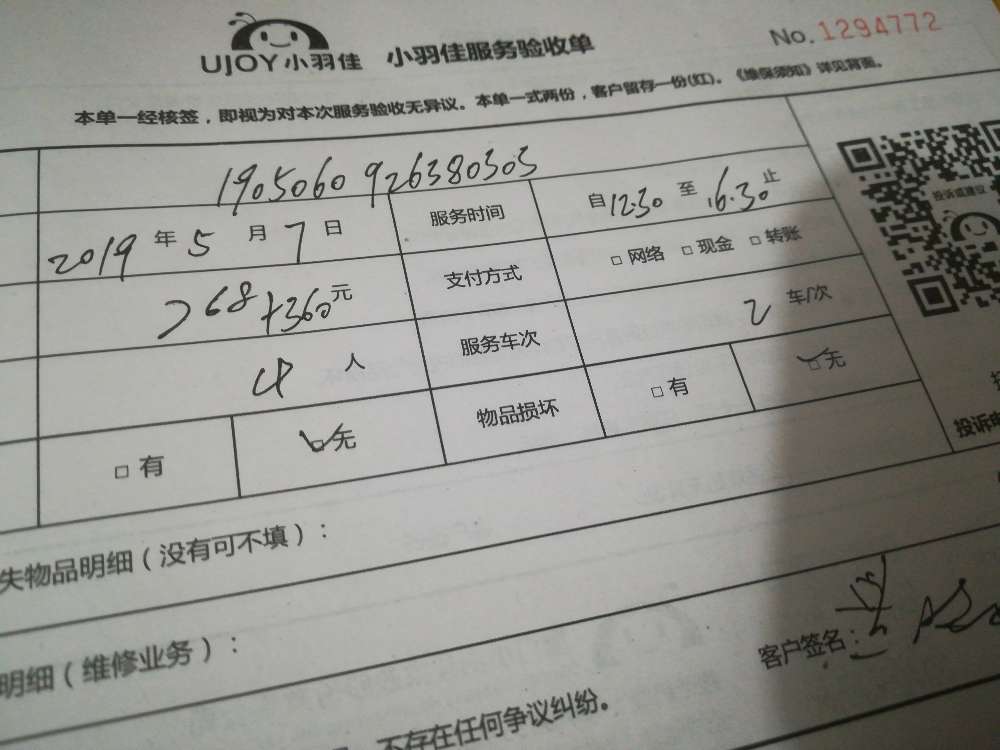 UJOY小羽佳 小羽佳服务验收单 No.1294772
本单一经核签，即视为对本次服务验收无异议。本单一式两份，客户留存一份(红)。《维保须知》详见背面。
1905060926380303
2019年5月7日 服务时间 自12:30至16:30止
268+360元 支付方式 □网络 □现金 □转账
4人 服务车次 2车/次
□有 □无 物品损坏 □有 □无
投诉或建议
投诉
失物品明细（没有可不填）：
明细（维修业务）：
客户签名：
不存在任何争议纠纷。